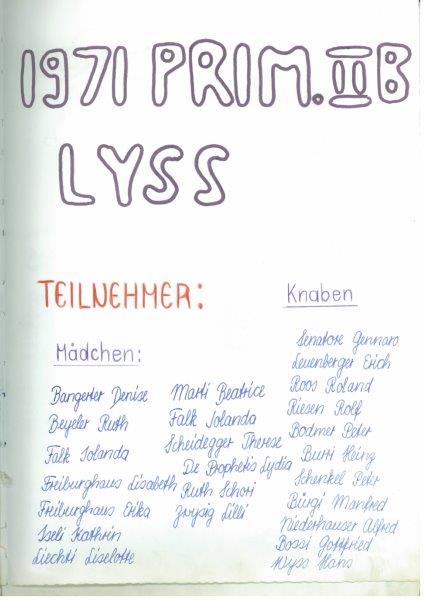 1971 PRIM. II B
LYSS
TEILNEHMER:
Mädchen:
Bangerter Denise
Beyeler Ruth
Falk Iolanda
Freiburghaus Lisabeth
Freiburghaus Erika
Iseli Kathrin
Liechti Liselotte
Marti Beatrice
Falk Iolanda
Scheidegger Therese
De Prophetis Lydia
Ruth Schori
Zwysig Lilli
Knaben
Senatore Gennaro
Leuenberger Erich
Roos Roland
Riesen Rolf
Bodmer Peter
Burri Heinz
Schenkel Peter
Bürgi Manfred
Niederhauser Alfred
Bossi Gottfried
Wyss Hans